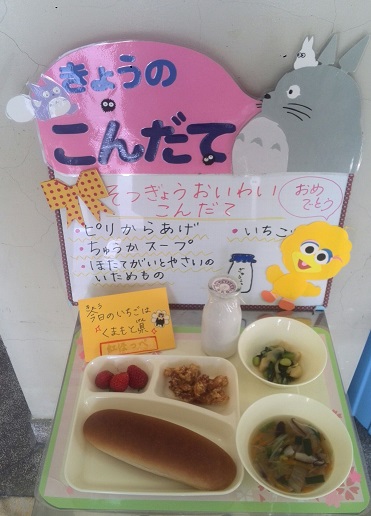 きょうの
こんだて
そつぎょうおいわい
こんだて
おめ
でとう
・ピリからあげ
・いちご
・ちゅうかスープ
・ほたてがいとやさいの
いためもの
きょう
今日のいちごは
くまもと県